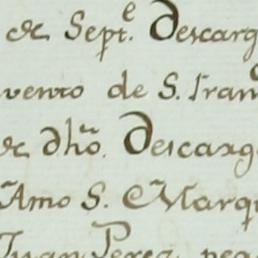 de Septe. Descarg
vento de S. Fran
de dho. Descarg
Amo S. Marqu
Juan Perez, pea